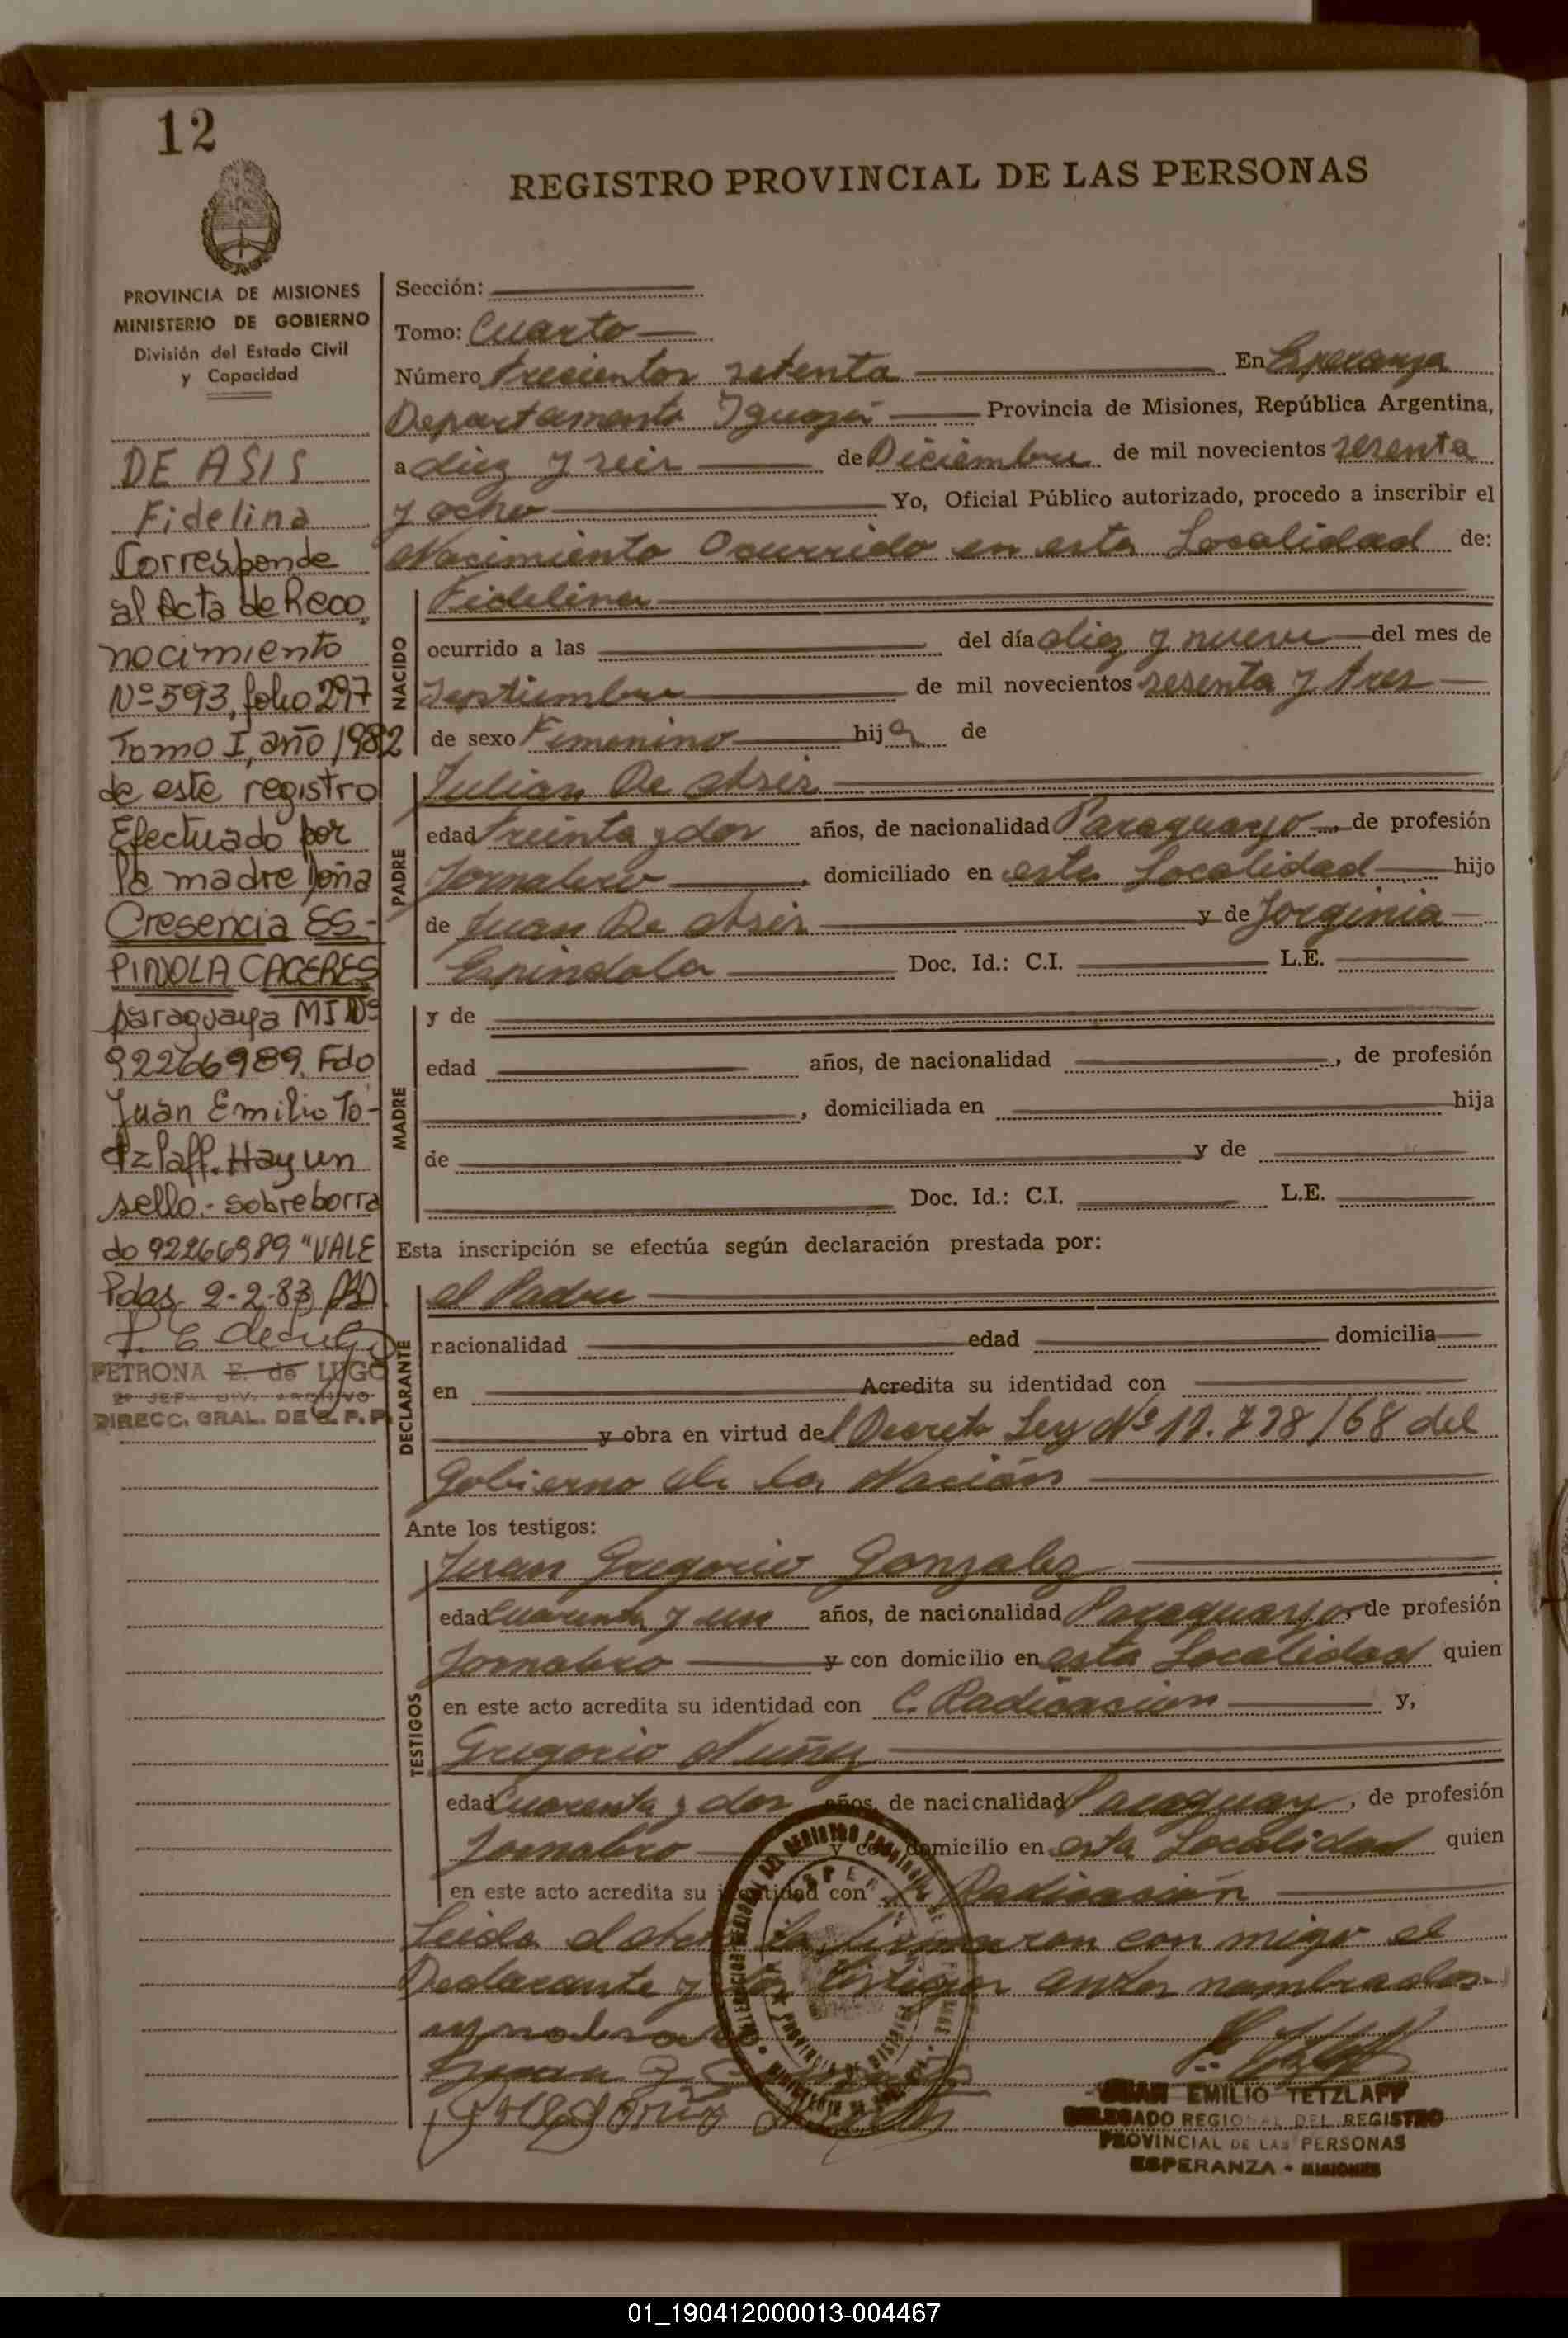 12
REGISTRO PROVINCIAL DE LAS PERSONAS
PROVINCIA DE MISIONES
MINISTERIO DE GOBIERNO
División del Estado Civil
y Capacidad
DE ASIS
Fidelina
Corresponde
al Acta de Reco
nocimiento
Nº 593, folio 297
Tomo I, año 1982
de este registro
Efectuado por
la madre Doña
Cresencia ES-
PINOLA CACERES
paraguaya MI Nº
92266989. Fdo
Juan Emilio Te-
tzlaff. Hay un
sello.- sobreborra
do 92266989 "VALE
Pdas. 2-2-83
PETRONA E. de LUGO
DIRECC. GRAL. DE R. P. P.
Sección:
Tomo: Cuarto
Número trecientos setenta En Esperanza
Departamento Iguazú Provincia de Misiones, República Argentina,
a diez y seis de Diciembre de mil novecientos sesenta
y ocho Yo, Oficial Público autorizado, procedo a inscribir el
Nacimiento Ocurrido en esta Localidad de:
NACIDO
Fidelina
ocurrido a las del día diez y nueve del mes de
Septiembre de mil novecientos sesenta y tres
de sexo Femenino hija de
PADRE
Julian De Asis
edad treinta y dos años, de nacionalidad Paraguayo, de profesión
Jornalero, domiciliado en esta Localidad hijo
de Juan De Asis y de Jorginia
Espindola Doc. Id.: C.I. L.E.
MADRE
y de
edad años, de nacionalidad , de profesión
, domiciliada en hija
de y de
Doc. Id.: C.I. L.E.
Esta inscripción se efectúa según declaración prestada por:
DECLARANTE
el Padre
nacionalidad edad domicilia
en Acredita su identidad con
y obra en virtud del Decreto Ley Nº 17.728/68 del
Gobierno de la Nación
Ante los testigos:
TESTIGOS
Juan Gregorio Gonzalez
edad cuarenta y un años, de nacionalidad Paraguayo, de profesión
Jornalero y con domicilio en esta Localidad quien
en este acto acredita su identidad con C. Radicacion y,
Gregorio Nuñez
edad Cuarenta y dos años, de nacionalidad Paraguay, de profesión
Jornalero y con domicilio en esta Localidad quien
en este acto acredita su identidad con Radicación
Leida el Acta la firmaron con migo el
Declarante y los testigos antes nombrados.
JUAN EMILIO TETZLAFF
DELEGADO REGIONAL DEL REGISTRO
PROVINCIAL DE LAS PERSONAS
ESPERANZA - MISIONES
01_190412000013-004467